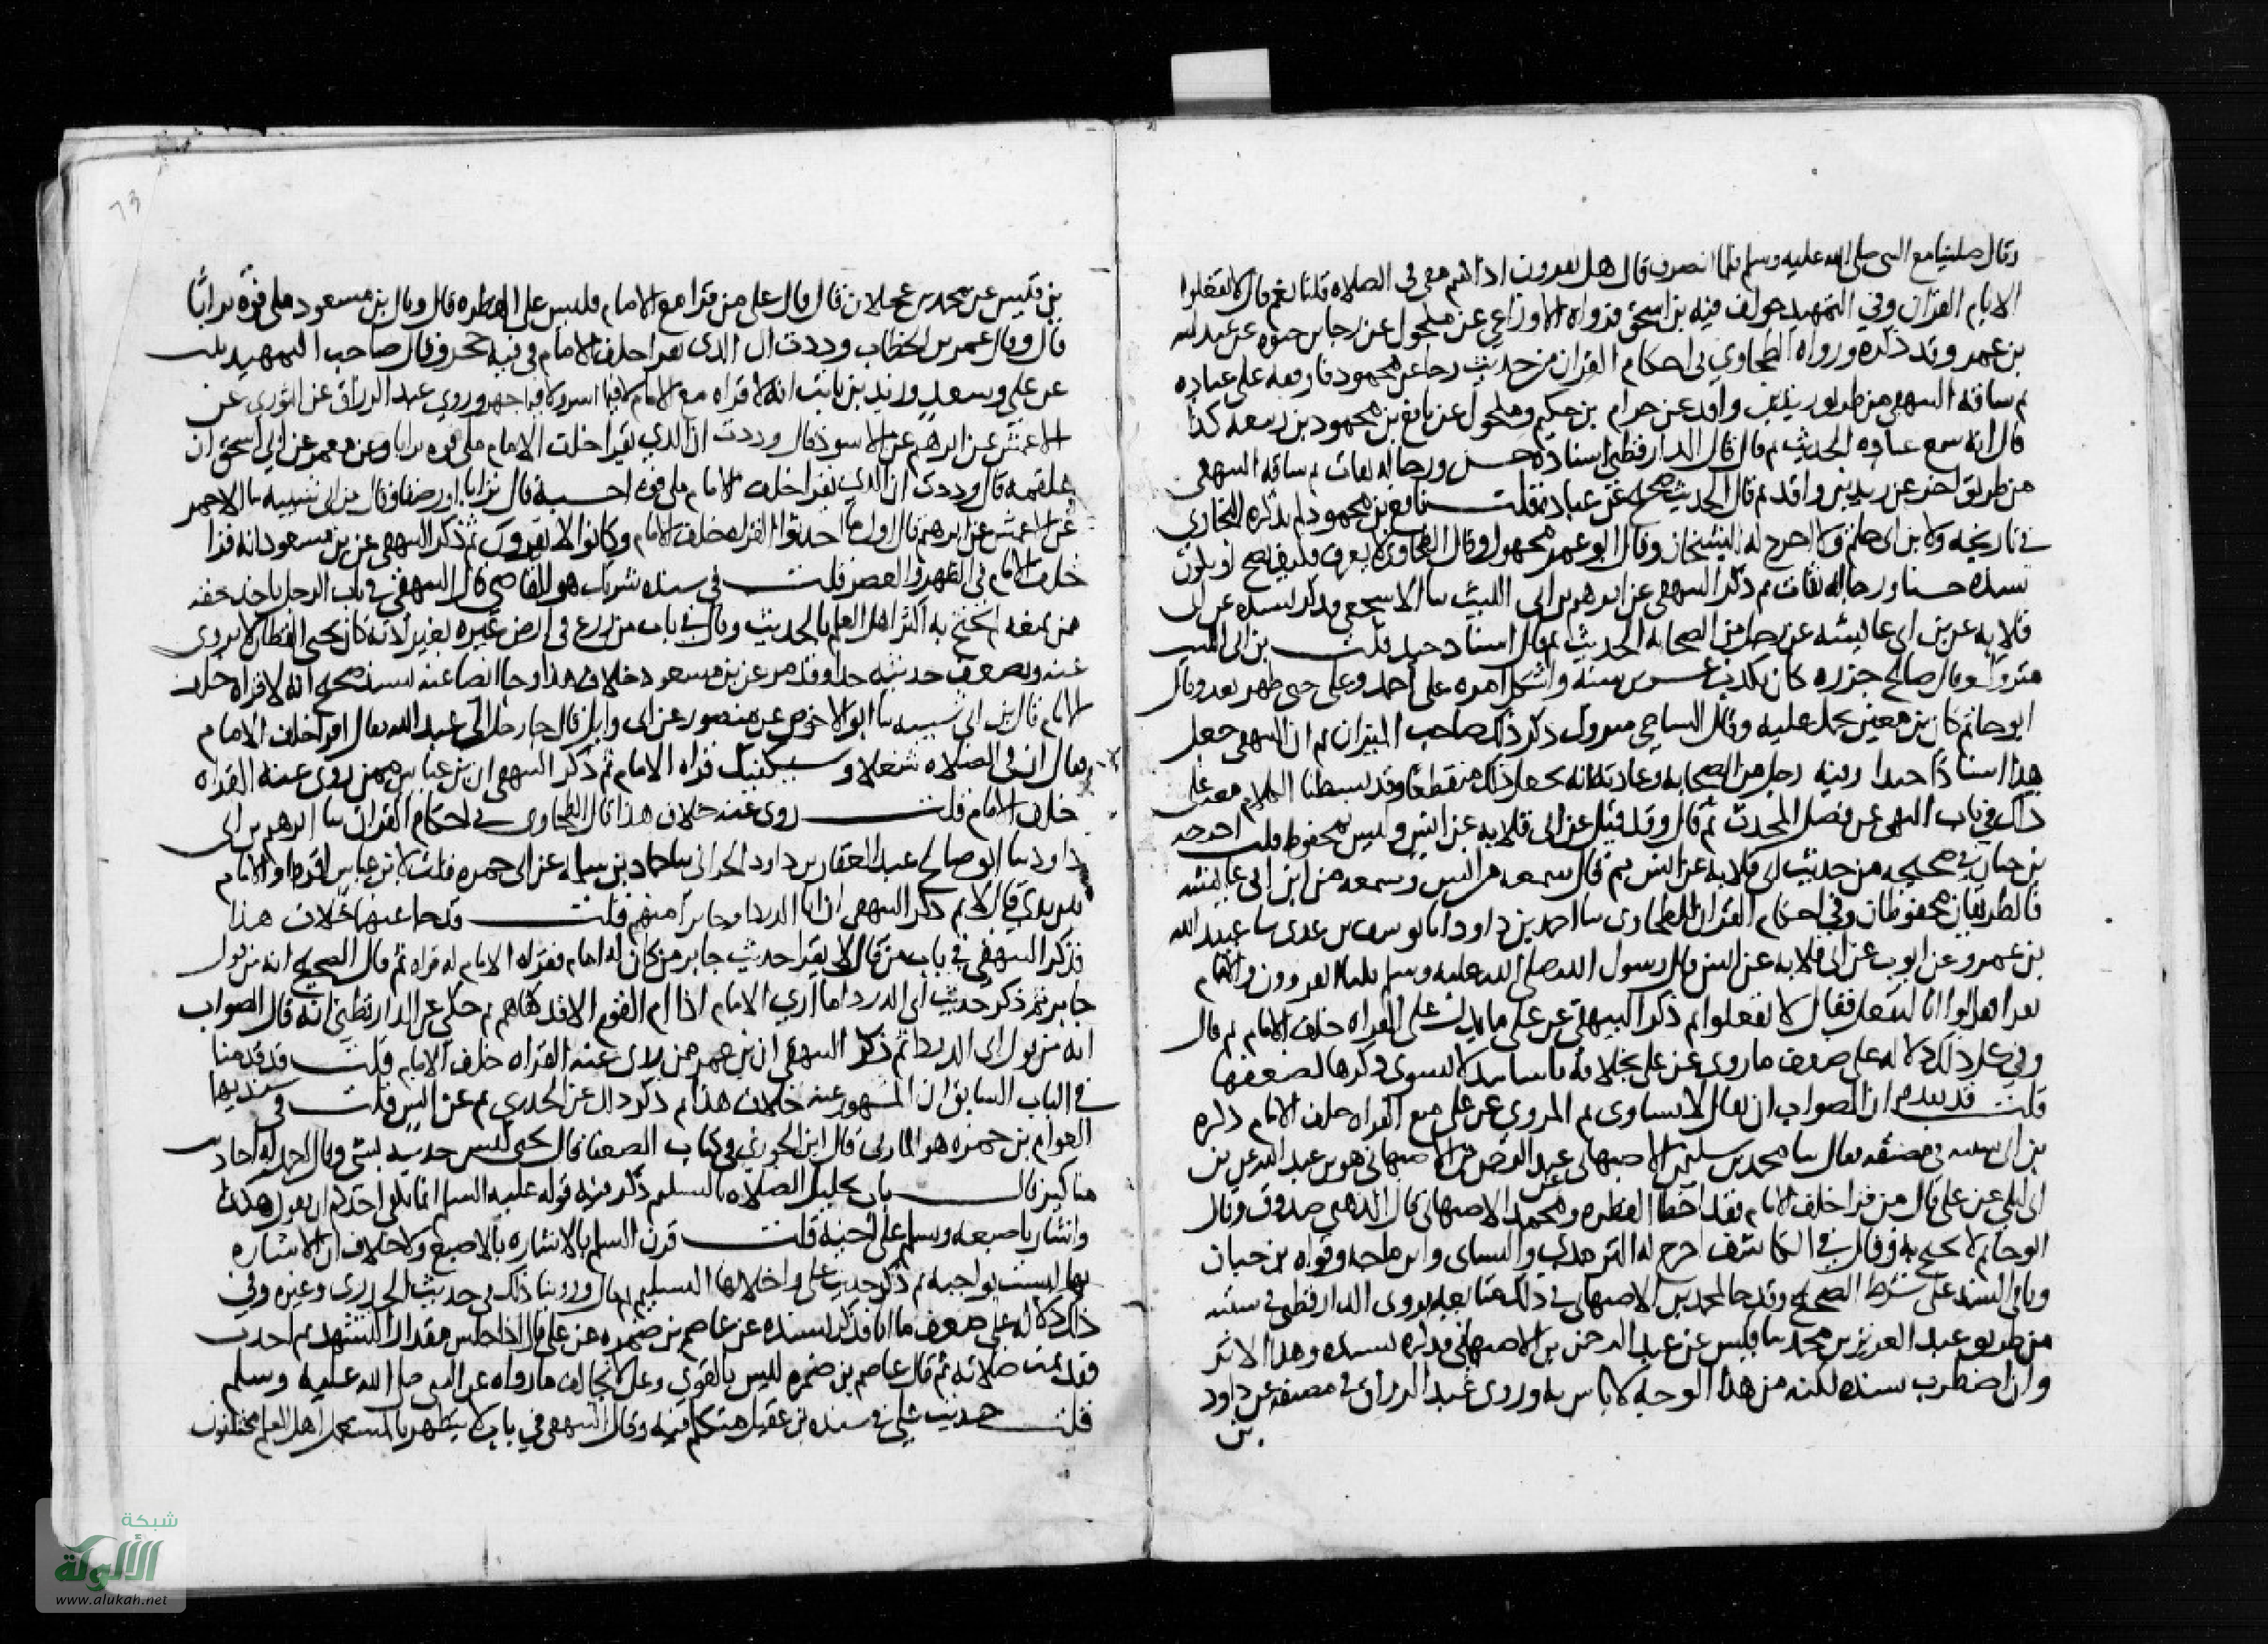 وقال صلينا مع النبي صلى الله عليه وسلم فلما انصرف قال هل تقرون اذا كنتم معي في الصلاة قلنا نعم قال لا تفعلوا
الا بام القران وفي التمهيد خولف فيه بن اسحق فرواه الاوزاعي عن مكحول عن رجا بن حيوه عن عبد الله
بن عمرو وقد ذكره ورواه الطحاوي في احكام القران من حديث رجا عن محمود فاوقفه على عباده
ثم ساقه البيهقي من طريق زيد بن واقد عن حرام بن حكيم ومكحول عن نافع بن محمود بن ربيعه كذا
قال انه سمع عباده الحديث ثم قال قال الدارقطني اسناده حسن ورجاله ثقات ثم ساقه البيهقي
من طريق اخر عن زيد بن واقد ثم قال الحديث صحيح عن عباده قلت نافع بن محمود لم يذكره البخاري
في تاريخه ولا بن ابي حاتم ولا اخرج له الشيخان وقال ابو عمر مجهول وقال الطحاوي لا يعرف فكيف يصح او يكون
سنده حسنا ورجاله ثقات ثم ذكر البيهقي عن ابرهيم بن ابي الليث ثنا الاشجعي فذكر بسنده عن ابي
قلابه عن بن ابي عايشه عن رجل من الصحابه الحديث ثم قال اسناد جيد قلت بن ابي الليث
متروك وقال صالح جزره كان يكذب عشرين سنه واشكل امره على احمد وعلي حتى ظهر بعد وقال
ابو حاتم كان بن معين يحمل عليه وقال الساجي متروك ذكر ذلك صاحب الميزان ثم ان البيهقي جعل
هذا اسنادا جيدا وفيه رجل من الصحابه وعادته انه يجعل ذلك منقطعا وقد بسطنا الكلام معه على
ذلك في باب النهي عن فضل المحدث ثم قال وقد قيل عن ابي قلابه عن انس وليس بمحفوظ قلت اخرجه
بن حبان في صحيحه من حديث ابي قلابه عن انس ثم قال سمعه من انس وسمعه من ابن ابي عايشه
فالطريقان محفوظان وفي احكام القران للطحاوي ثنا احمد بن داود انا يوسف بن عدي ثنا عبيد الله
بن عمرو عن ايوب عن ابي قلابه عن انس قال رسول الله صلى الله عليه وسلم اتقرون والامام
يقرا فقالوا انا لنفعل فقال لا تفعلوا ثم ذكر البيهقي عن علي ما يدل على القراه خلف الامام ثم قال
وفي كل ذلك دلاله على ضعف ما روي عن علي بخلافه باسانيد لا تسوى ذكرها لضعفها
قلت قد تقدم ان الصواب ان يقال لا تساوي ثم المروي عن علي منع القراه خلف الامام ذكره
بن ابي شيبه في مصنفه فقال ثنا محمد بن سليمن الاصبهاني عن عبد الرحمن بن الاصبهاني هو بن عبد الله عن بن
ابي ليلى عن علي قال من قرا خلف الامام فقد اخطا الفطره ومحمد الاصبهاني قال الذهبي صدوق وقال
ابو حاتم لا يحتج به وقال في الكاشف اخرج له الترمذي والنساي وابن ماجه وقواه بن حبان
وباقي السند على شرط الصحيح وقد جا لمحمد بن الاصبهاني في ذلك متابعه فروى الدارقطني في سننه
من طريق عبد العزيز بن محمد ثنا قيس عن عبد الرحمن بن الاصبهاني فذكره بسنده وهذا الاثر
وان اضطرب سنده لكنه من هذا الوجه لا باس به وروى عبد الرزاق في مصنفه عن داود
بن
73
بن قيس عن محمد بن عجلان قال قال علي من قرا مع الامام فليس على الفطره قال وقال بن مسعود ملي فوه ترابا
قال وقال عمر بن الخطاب وددت ان الذي يقرا خلف الامام في فيه حجر وقال صاحب التمهيد ثبت
عن علي وسعد وزيد بن ثابت انه لا قراه مع الامام لا فيما اسر ولا فيما جهر وروى عبد الرزاق عن الثوري عن
الاعمش عن ابرهيم عن الاسود قال وددت ان الذي يقرا خلف الامام ملي فوه ترابا وعن معمر عن ابي اسحق ان
علقمه قال وددت ان الذي يقرا خلف الامام ملي فوه احسبه قال ترابا او رضفا وقال بن ابي شيبه ثنا الاحمر
عن الاعمش عن ابرهيم قال اول ما احدثوا القراه خلف الامام وكانوا لا يقرون ثم ذكر البيهقي عن بن مسعود انه قرا
خلف الامام في الظهر والعصر قلت في سنده شريك هو القاضي قال البيهقي في باب الرجل ياخذ حقه
ممن يمنعه لم يحتج به اكثر اهل العلم بالحديث وقال في باب من زرع في ارض غيره بغير اذنه كان يحيى القطان لا يروي
عنه ويضعف حديثه جدا وقد مر عن بن مسعود خلاف هذا وجا ايضا عنه بسند صحيح انه لا قراه خلف
الامام قال بن ابي شيبه ثنا ابو الاحوص عن منصور عن ابي وايل قال جا رجل الى عبد الله فقال اقرا خلف الامام
فقال ان في الصلاه شغلا وسيكفيك قراه الامام ثم ذكر البيهقي ان بن عباس ممن روي عنه القراه
خلف الامام قلت روي عنه خلاف هذا قال الطحاوي في احكام القران ثنا ابرهيم بن ابي
داود ثنا ابو صالح عبد الغفار بن داود الحراني ثنا حماد بن سلمه عن ابي حمزه قلت لابن عباس اقرا والامام
بين يدي قال لا ثم ذكر البيهقي ان ابا الدردا وجابرا منهم قلت قد جا عنهما خلاف هذا
فذكر البيهقي في باب من قال لا يقرا حديث جابر من كان له امام فقراه الامام له قراه ثم قال الصحيح انه من قول
جابر ثم ذكر حديث ابي الدردا ما ارى الامام اذا ام القوم الا قد كفاهم ثم حكى عن الدارقطني انه قال الصواب
انه من قول ابي الدردا ثم ذكر البيهقي ان بن عمر ممن روي عنه القراه خلف الامام قلت قد قدمنا
في الباب السابق ان المشهور عنه خلاف هذا ثم ذكر ذلك عن الخدري ثم عن انس قلت في سنديهما
العوام بن حمزه هو المازني قال ابن الجوزي في كتاب الضعفا قال يحيى ليس حديثه بشي وقال احمد له احاديث
مناكير قال باب تحليل الصلاه بالتسليم ذكر فيه قوله عليه السلم انما يكفي احدكم ان يقول هكذا
واشار باصبعه ويسلم على اخيه قلت قرن السلم بالاشاره بالاصبع ولا خلاف ان الاشاره
بها ليست بواجبه ثم ذكر حديث علي واحلالها التسليم ثم قال وروينا ذلك في حديث الخدري وغيره وفي
ذلك دلاله على ضعف ما انا فذكر بسنده عن عاصم بن ضمره عن علي قال اذا جلس مقدار التشهد ثم احدث
فقد تمت صلاته ثم قال عاصم بن ضمره ليس بالقوي وعلي لا يخالف ما رواه عن النبي صلى الله عليه وسلم
قلت حديث علي في سنده بن عقيل متكلم فيه وقال البيهقي في باب لا يتطهر بالمستعمل اهل العلم مختلفون
شبكة
الألوكة
www.alukah.net